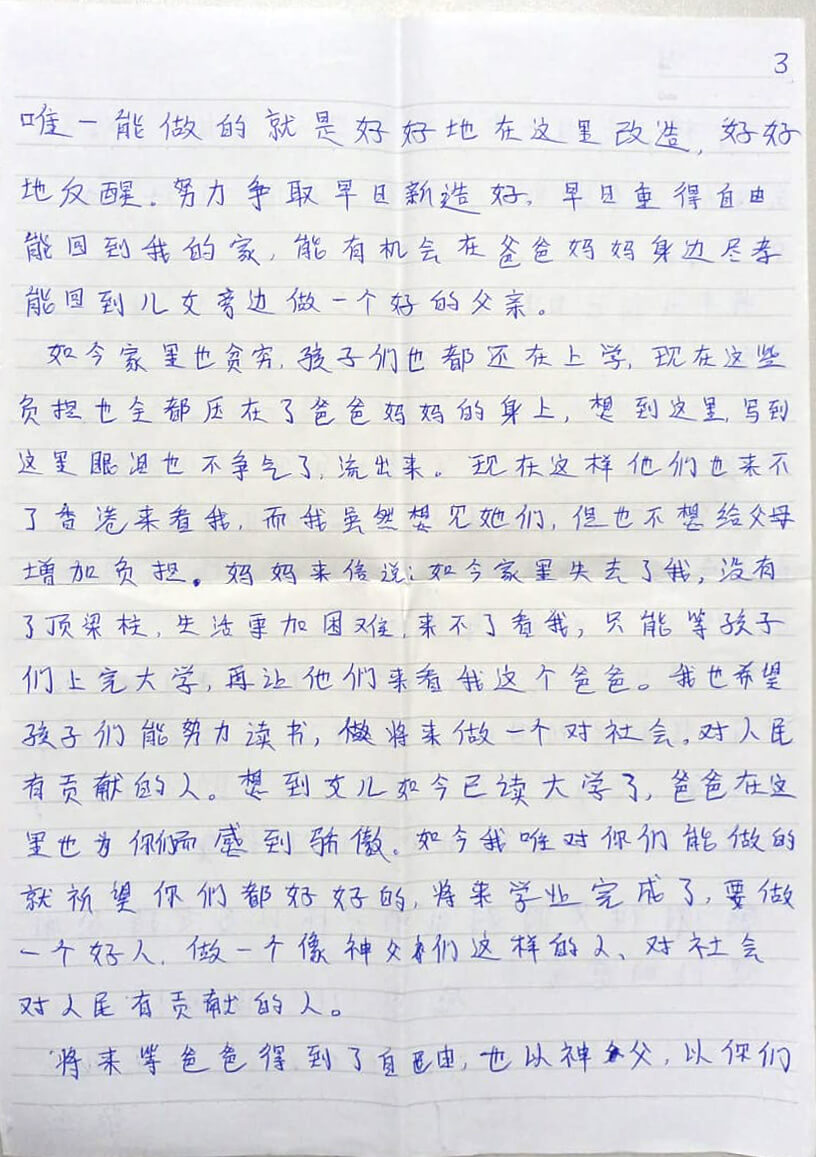 3
唯一能做的就是好好地在这里改造，好好
地反醒。努力争取早日新造好，早日重得自由
能回到我的家，能有机会在爸爸妈妈身边尽孝
能回到儿女旁边做一个好的父亲。
如今家里也贫穷，孩子们也都还在上学，现在这些
负担也全都压在了爸爸妈妈的身上，想到这里，写到
这里眼泪也不争气了，流出来。现在这样他们也来不
了香港来看我，而我虽然想见她们，但也不想给父母
增加负担。妈妈来信说：如今家里失去了我，没有
了顶梁柱，生活更加困难，来不了看我，只能等孩子
们上完大学，再让他们来看我这个爸爸。我也希望
孩子们能努力读书，做将来做一个对社会。对人民
有贡献的人。想到女儿如今已读大学了，爸爸在这
里也为你们而感到骄傲。如今我唯对你们能做的
就祈望你们都好好的，将来学业完成了，要做
一个好人，做一个像神父们这样的人、对社会
对人民有贡献的人。
将来等爸爸得到了自由，也以神父，以你们